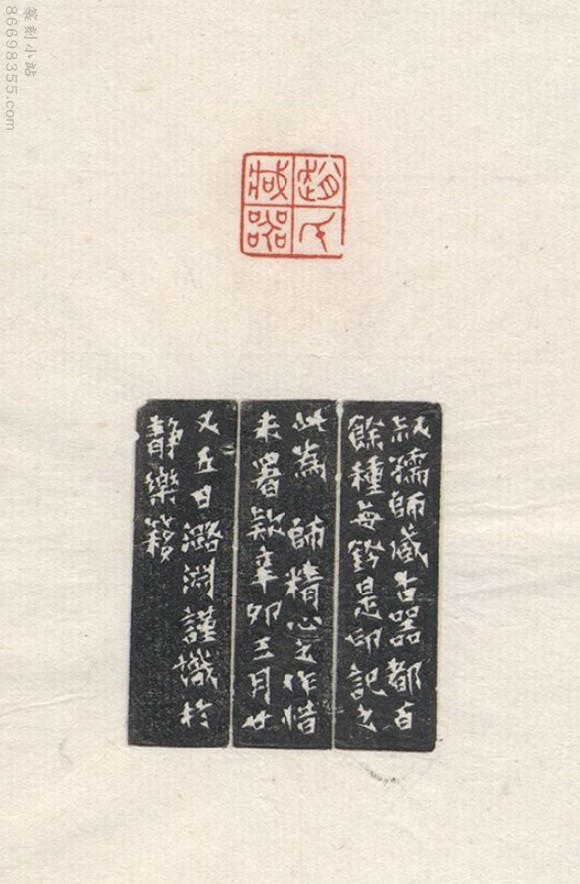 趙氏
臧器
叔孺師臧古器都百
餘種每鈐是印記之
此為 師精心之作惜
未署款辛卯三月廿
又五日潞淵謹識於
靜樂簃
篆刻小站
86698355.com